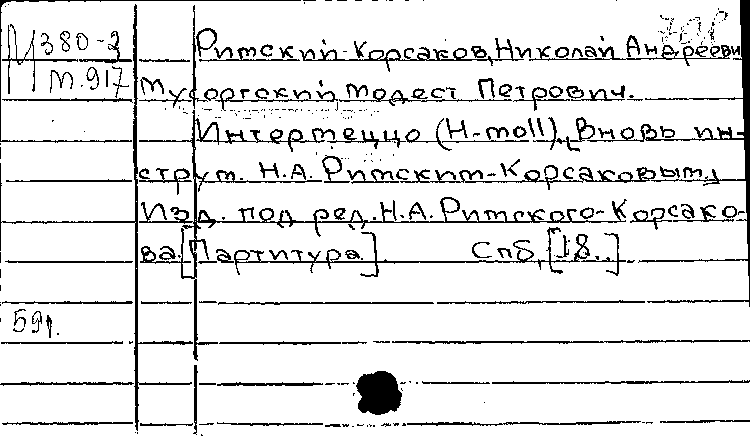 М 380-3
М.917
Римский-Корсаков, Николай Андрееви
Мусоргский Модест Петрович.
Интермеццо (H-moll). Вновь ин-
струм. Н.А. Римским-Корсаковым.
Изд. под ред. Н.А. Римского-Корсако-
ва. [Партитура]. Спб, [18..]
59г.